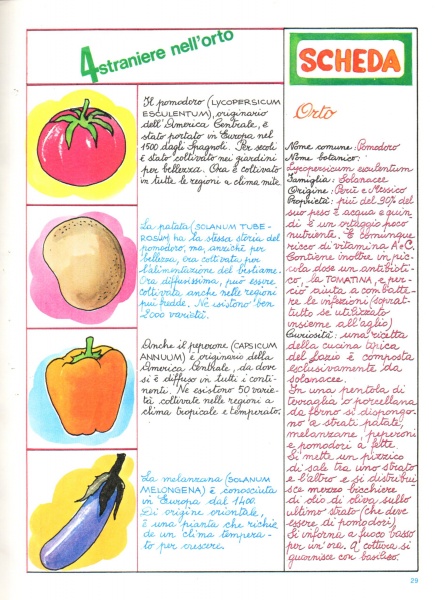 4 straniere nell'orto
Il pomodoro (LYCOPERSICUM
ESCULENTUM), originario
dell'America Centrale, è
stato portato in Europa nel
1500 dagli Spagnoli. Per secoli
è stato coltivato nei giardini
per bellezza. Ora è coltivato
in tutte le regioni a clima mite.
La patata (SOLANUM TUBE-
ROSUM) ha la stessa storia del
pomodoro, ma, anziché per
bellezza, era coltivata per
l'alimentazione del bestiame.
Ora diffusissima, può essere
coltivata anche nelle regioni
più fredde. Ne esistono ben
2000 varietà.
Anche il peperone (CAPSICUM
ANNUUM) è originario della
America Centrale, da dove
si è diffuso in tutti i conti-
nenti. Ne esistono 50 varie-
tà coltivate nelle regioni a
clima tropicale e temperato.
La melanzana (SOLANUM
MELONGENA) è conosciuta
in Europa dal 1400.
Di origine orientale,
è una pianta che richie-
de un clima tempera-
to per crescere.
SCHEDA
Orto
Nome comune: Pomodoro
Nome botanico:
Lycopersicum esculentum
Famiglia: Solanacee
Origine: Perù e Messico
Proprietà: più del 90% del
suo peso è acqua e quin-
di è un ortaggio poco
nutriente. È comunque
ricco di vitamina A e C.
Contiene inoltre in pic-
cola dose un antibioti-
co, la TOMATINA, e per-
ciò aiuta a combatte-
re le infezioni (soprat-
tutto se utilizzato
insieme all'aglio)
Curiosità: una ricetta
della cucina tipica
del Lazio è composta
esclusivamente da
solanacee.
In una pentola di
terraglia o porcellana
da forno si dispongo-
no a strati patate,
melanzane, peperoni
e pomodori a fette.
Si mette un pizzico
di sale tra uno strato
e l'altro e si distribui-
sce mezzo bicchiere
di olio di oliva sullo
ultimo strato (che deve
essere di pomodori).
Si inforna a fuoco basso
per un'ora. A cottura si
guarnisce con basilico.
29